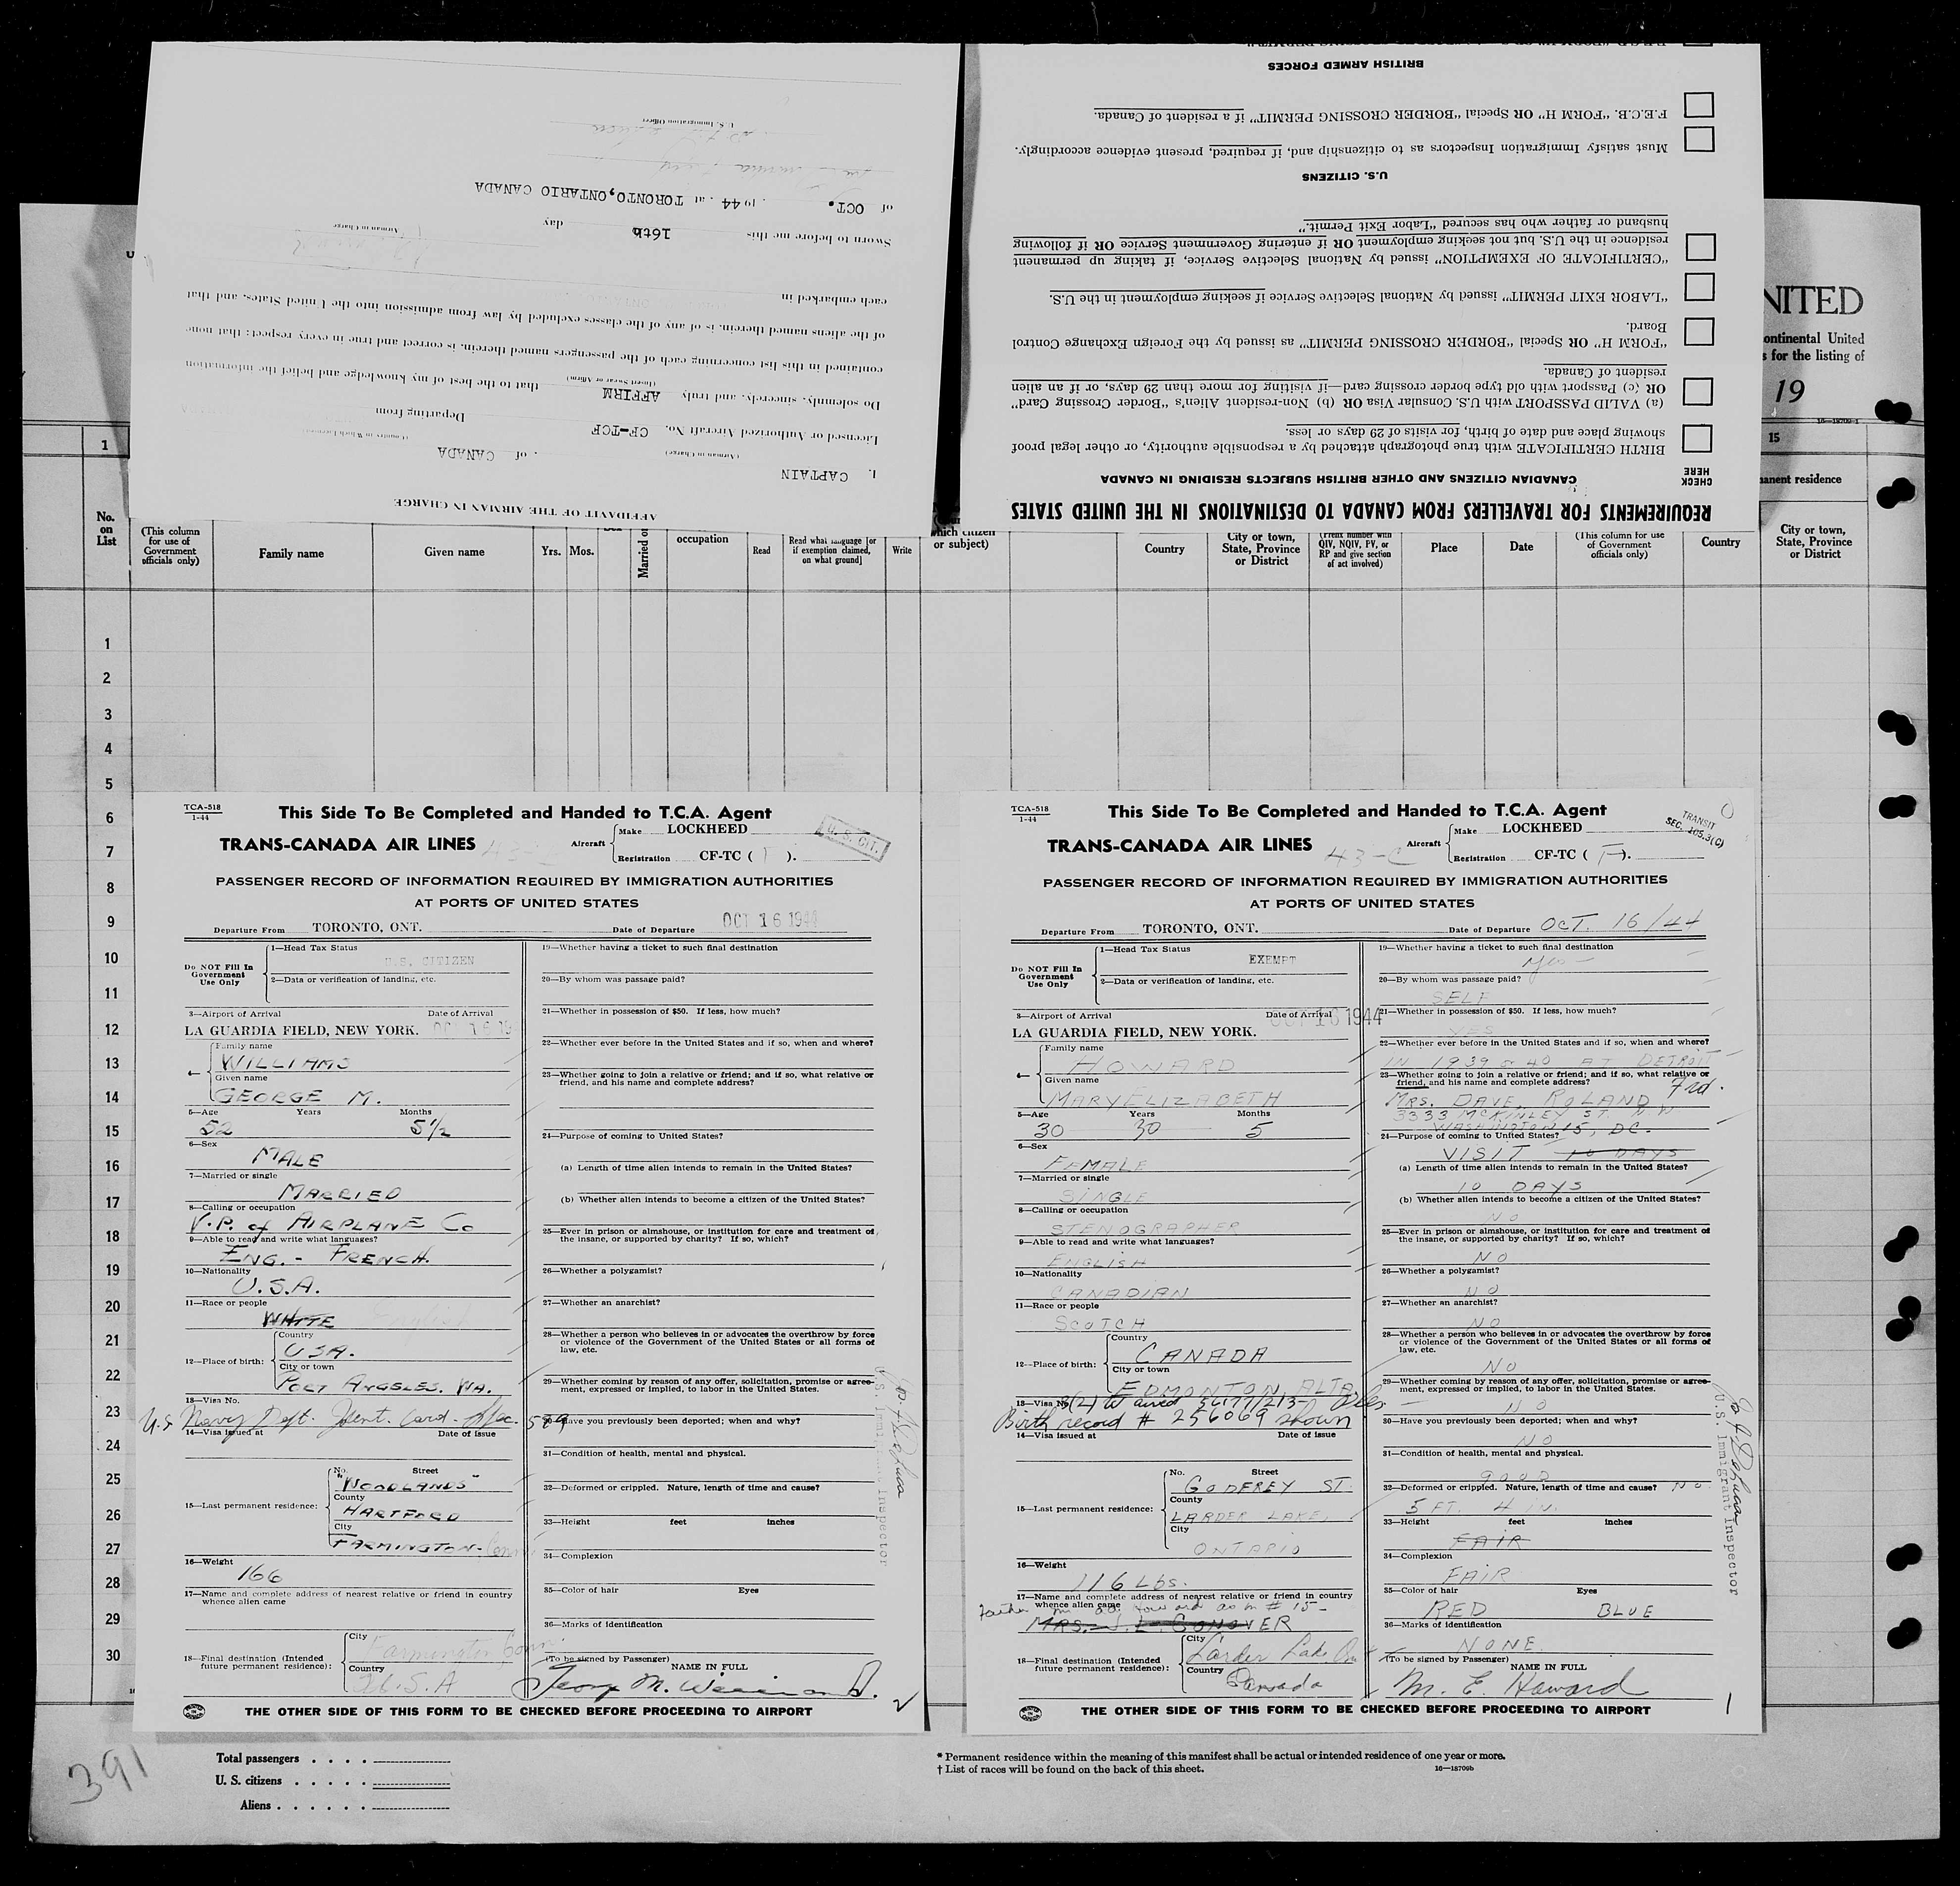 AFFIDAVIT OF THE AIRMAN IN CHARGE
I, CAPTAIN , of CANADA
(Airman in Charge)
Licensed or Authorized Aircraft No. CF-TCF Departing from
Do solemnly, sincerely, and truly AFFIRM that to the best of my knowledge and belief the information
(Insert Swear or Affirm)
contained in this list concerning each of the passengers named therein, is correct and true in every respect: that none
of the aliens named therein, is of any of the classes excluded by law from admission into the United States, and that
each embarked in
Airman in Charge
Sworn to before me this 16th day
of OCT. , 1944 , at TORONTO, ONTARIO CANADA
U.S. Immigration Officer
REQUIREMENTS FOR TRAVELLERS FROM CANADA TO DESTINATIONS IN THE UNITED STATES
CHECK HERE
CANADIAN CITIZENS AND OTHER BRITISH SUBJECTS RESIDING IN CANADA
BIRTH CERTIFICATE with true photograph attached by a responsible authority, or other legal proof
showing place and date of birth, for visits of 29 days or less.
(a) VALID PASSPORT with U.S. Consular Visa OR (b) Non-resident Alien's "Border Crossing Card"
OR (c) Passport with old type border crossing card—if visiting for more than 29 days, or if an alien
resident of Canada.
"FORM H" OR Special "BORDER CROSSING PERMIT" as issued by the Foreign Exchange Control
Board.
"LABOR EXIT PERMIT" issued by National Selective Service if seeking employment in the U.S.
"CERTIFICATE OF EXEMPTION" issued by National Selective Service, if taking up permanent
residence in the U.S. but not seeking employment OR if entering Government Service OR if following
husband or father who has secured "Labor Exit Permit."
U.S. CITIZENS
Must satisfy Immigration Inspectors as to citizenship and, if required, present evidence accordingly.
F.E.C.B. "FORM H" OR Special "BORDER CROSSING PERMIT" if a resident of Canada.
BRITISH ARMED FORCES
NITED
ontinental United
s for the listing of
19
16—18709-1
1
15
anent residence
No. on List
(This column for use of Government officials only)
Family name
Given name
Yrs. Mos.
Married or
occupation
Read
Read what language [or if exemption claimed, on what ground]
Write
which citizen or subject)
Country
City or town, State, Province or District
(Prefix number with QIV, NQIV, PV, or RP and give section of act involved)
Place
Date
(This column for use of Government officials only)
Country
City or town, State, Province or District
1
2
3
4
5
6
7
8
9
10
11
12
13
14
15
16
17
18
19
20
21
22
23
24
25
26
27
28
29
30
TCA-518
1-44
This Side To Be Completed and Handed to T.C.A. Agent
TRANS-CANADA AIR LINES 43-C
Aircraft Make LOCKHEED
Registration CF-TC ( F ).
U. S. CIT.
PASSENGER RECORD OF INFORMATION REQUIRED BY IMMIGRATION AUTHORITIES
AT PORTS OF UNITED STATES
Departure From TORONTO, ONT. Date of Departure OCT 16 1944
Do NOT Fill In Government Use Only
1—Head Tax Status
U.S. CITIZEN
2—Data or verification of landing, etc.
3—Airport of Arrival Date of Arrival
LA GUARDIA FIELD, NEW YORK. OCT 16 19
4— Family name
WILLIAMS
Given name
GEORGE M.
5—Age Years Months
52 5½
6—Sex
MALE
7—Married or single
MARRIED
8—Calling or occupation
V.P. of AIRPLANE CO
9—Able to read and write what languages?
ENG. - FRENCH.
10—Nationality
U.S.A.
11—Race or people
WHITE English
12—Place of birth: Country
USA.
City or town
PORT ANGELES, WA.
13—Visa No.
U.S Navy Dept. Ident. Card - 589
14—Visa issued at Date of issue
15—Last permanent residence: No. Street
"WOODLANDS"
County
HARTFORD
City
FARMINGTON - Conn
16—Weight
166
17—Name and complete address of nearest relative or friend in country
whence alien came
18—Final destination (Intended future permanent residence): City
Farmington Conn.
Country
U.S.A
19—Whether having a ticket to such final destination
20—By whom was passage paid?
21—Whether in possession of $50. If less, how much?
22—Whether ever before in the United States and if so, when and where?
23—Whether going to join a relative or friend; and if so, what relative or
friend, and his name and complete address?
24—Purpose of coming to United States?
(a) Length of time alien intends to remain in the United States?
(b) Whether alien intends to become a citizen of the United States?
25—Ever in prison or almshouse, or institution for care and treatment of
the insane, or supported by charity? If so, which?
26—Whether a polygamist?
27—Whether an anarchist?
28—Whether a person who believes in or advocates the overthrow by force
or violence of the Government of the United States or all forms of
law, etc.
29—Whether coming by reason of any offer, solicitation, promise or agree-
ment, expressed or implied, to labor in the United States.
30—Have you previously been deported; when and why?
31—Condition of health, mental and physical.
32—Deformed or crippled. Nature, length of time and cause?
33—Height feet inches
34—Complexion
35—Color of hair Eyes
36—Marks of identification
(To be signed by Passenger) NAME IN FULL
George M. Williams. 2
U.S. Immigrant Inspector
THE OTHER SIDE OF THIS FORM TO BE CHECKED BEFORE PROCEEDING TO AIRPORT
TCA-518
1-44
This Side To Be Completed and Handed to T.C.A. Agent
TRANS-CANADA AIR LINES 43-C
Aircraft Make LOCKHEED
Registration CF-TC ( F ).
TRANSIT
SEC. 105.3(C)
PASSENGER RECORD OF INFORMATION REQUIRED BY IMMIGRATION AUTHORITIES
AT PORTS OF UNITED STATES
Departure From TORONTO, ONT. Date of Departure OCT. 16/44
Do NOT Fill In Government Use Only
1—Head Tax Status
EXEMPT
2—Data or verification of landing, etc.
3—Airport of Arrival Date of Arrival
LA GUARDIA FIELD, NEW YORK. OCT 16 1944
4— Family name
HOWARD
Given name
MARY ELIZABETH
5—Age Years Months
30 30 5
6—Sex
FEMALE
7—Married or single
SINGLE
8—Calling or occupation
STENOGRAPHER
9—Able to read and write what languages?
ENGLISH
10—Nationality
CANADIAN
11—Race or people
SCOTCH
12—Place of birth: Country
CANADA
City or town
EDMONTON ALTA.
13—Visa No.
Birth record # 256069 shown
14—Visa issued at Date of issue
15—Last permanent residence: No. Street
GODFREY ST.
County
LARDER LAKE,
City
ONTARIO
16—Weight
116 Lbs.
17—Name and complete address of nearest relative or friend in country
whence alien came
Father Howard as in # 15-
18—Final destination (Intended future permanent residence): City
Larder Lake On
Country
Canada
19—Whether having a ticket to such final destination
yes
20—By whom was passage paid?
SELF
21—Whether in possession of $50. If less, how much?
YES
22—Whether ever before in the United States and if so, when and where?
IN 1939 & 40 AT DETROIT
23—Whether going to join a relative or friend; and if so, what relative or
friend, and his name and complete address? Frd.
MRS. DAVE ROLAND
3333 MCKINLEY ST. N W
WASHINGTON 15, DC.
24—Purpose of coming to United States?
VISIT 10 DAYS
(a) Length of time alien intends to remain in the United States?
10 DAYS
(b) Whether alien intends to become a citizen of the United States?
NO
25—Ever in prison or almshouse, or institution for care and treatment of
the insane, or supported by charity? If so, which?
NO
26—Whether a polygamist?
NO
27—Whether an anarchist?
NO
28—Whether a person who believes in or advocates the overthrow by force
or violence of the Government of the United States or all forms of
law, etc.
NO
29—Whether coming by reason of any offer, solicitation, promise or agree-
ment, expressed or implied, to labor in the United States.
NO
30—Have you previously been deported; when and why?
NO
31—Condition of health, mental and physical.
GOOD
32—Deformed or crippled. Nature, length of time and cause? No
5 FT. 4 IN.
33—Height feet inches
FAIR
34—Complexion
FAIR
35—Color of hair Eyes
RED BLUE
36—Marks of identification
NONE
(To be signed by Passenger) NAME IN FULL
M. E. Howard 1
U.S. Immigrant Inspector
THE OTHER SIDE OF THIS FORM TO BE CHECKED BEFORE PROCEEDING TO AIRPORT
391
Total passengers . . . .
U. S. citizens . . . . .
Aliens . . . . . .
* Permanent residence within the meaning of this manifest shall be actual or intended residence of one year or more.
† List of races will be found on the back of this sheet.
16—18709b